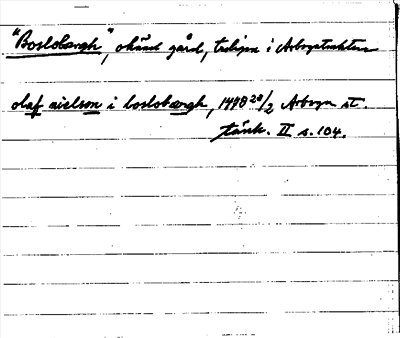 "Boslobærgh", okänd gård, troligen i Arbogatrakten
olaf nielson i boslobærgh, 1498 28/2 Arboga st.
tänk. II s. 104.